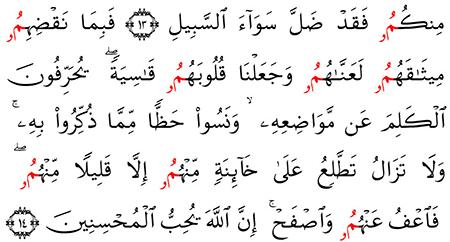 مِنكُمُۥ فَقَدْ ضَلَّ سَوَآءَ اَ۬لسَّبِيلِ ١٣ فَبِمَا نَقْضِهِمُۥ
مِيثَٰقَهُمُۥ لَعَنَّٰهُمُۥ وَجَعَلْنَا قُلُوبَهُمُۥ قَٰسِيَةٗۖ يُحَرِّفُونَ
اَ۬لْكَلِمَ عَن مَّوَاضِعِهِۦ ۙ وَنَسُواْ حَظّٗا مِّمَّا ذُكِّرُواْ بِهِۦ ۚ
وَلَا تَزَالُ تَطَّلِعُ عَلَىٰ خَآئِنَةٖ مِّنْهُمُۥ إِلَّا قَلِيلٗا مِّنْهُمُۥ ۖ
فَاَعْفُ عَنْهُمُۥ وَاَصْفَحْ ۚ إِنَّ اَ۬للَّهَ يُحِبُّ اُ۬لْمُحْسِنِينَ ١٤